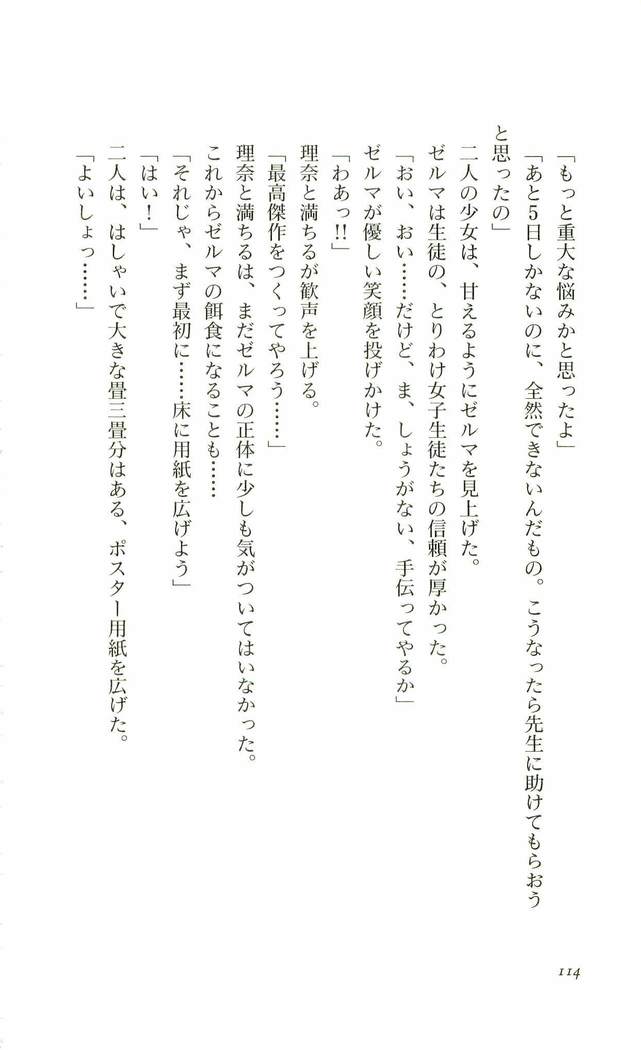 「もっと重大な悩みかと思ったよ」
「あと5日しかないのに、全然できないんだもの。こうなったら先生に助けてもらおう
と思ったの」
二人の少女は、甘えるようにゼルマを見上げた。
ゼルマは生徒の、とりわけ女子生徒たちの信頼が厚かった。
「おい、おい……だけど、ま、しょうがない、手伝ってやるか」
ゼルマが優しい笑顔を投げかけた。
「わあっ!!」
理奈と満ちるが歓声を上げる。
「最高傑作をつくってやろう……」
理奈と満ちるは、まだゼルマの正体に少しも気がついてはいなかった。
これからゼルマの餌食になることも……
「それじゃ、まず最初に……床に用紙を広げよう」
「はい！」
二人は、はしゃいで大きな畳三畳分はある、ポスター用紙を広げた。
「よいしょっ……」
114